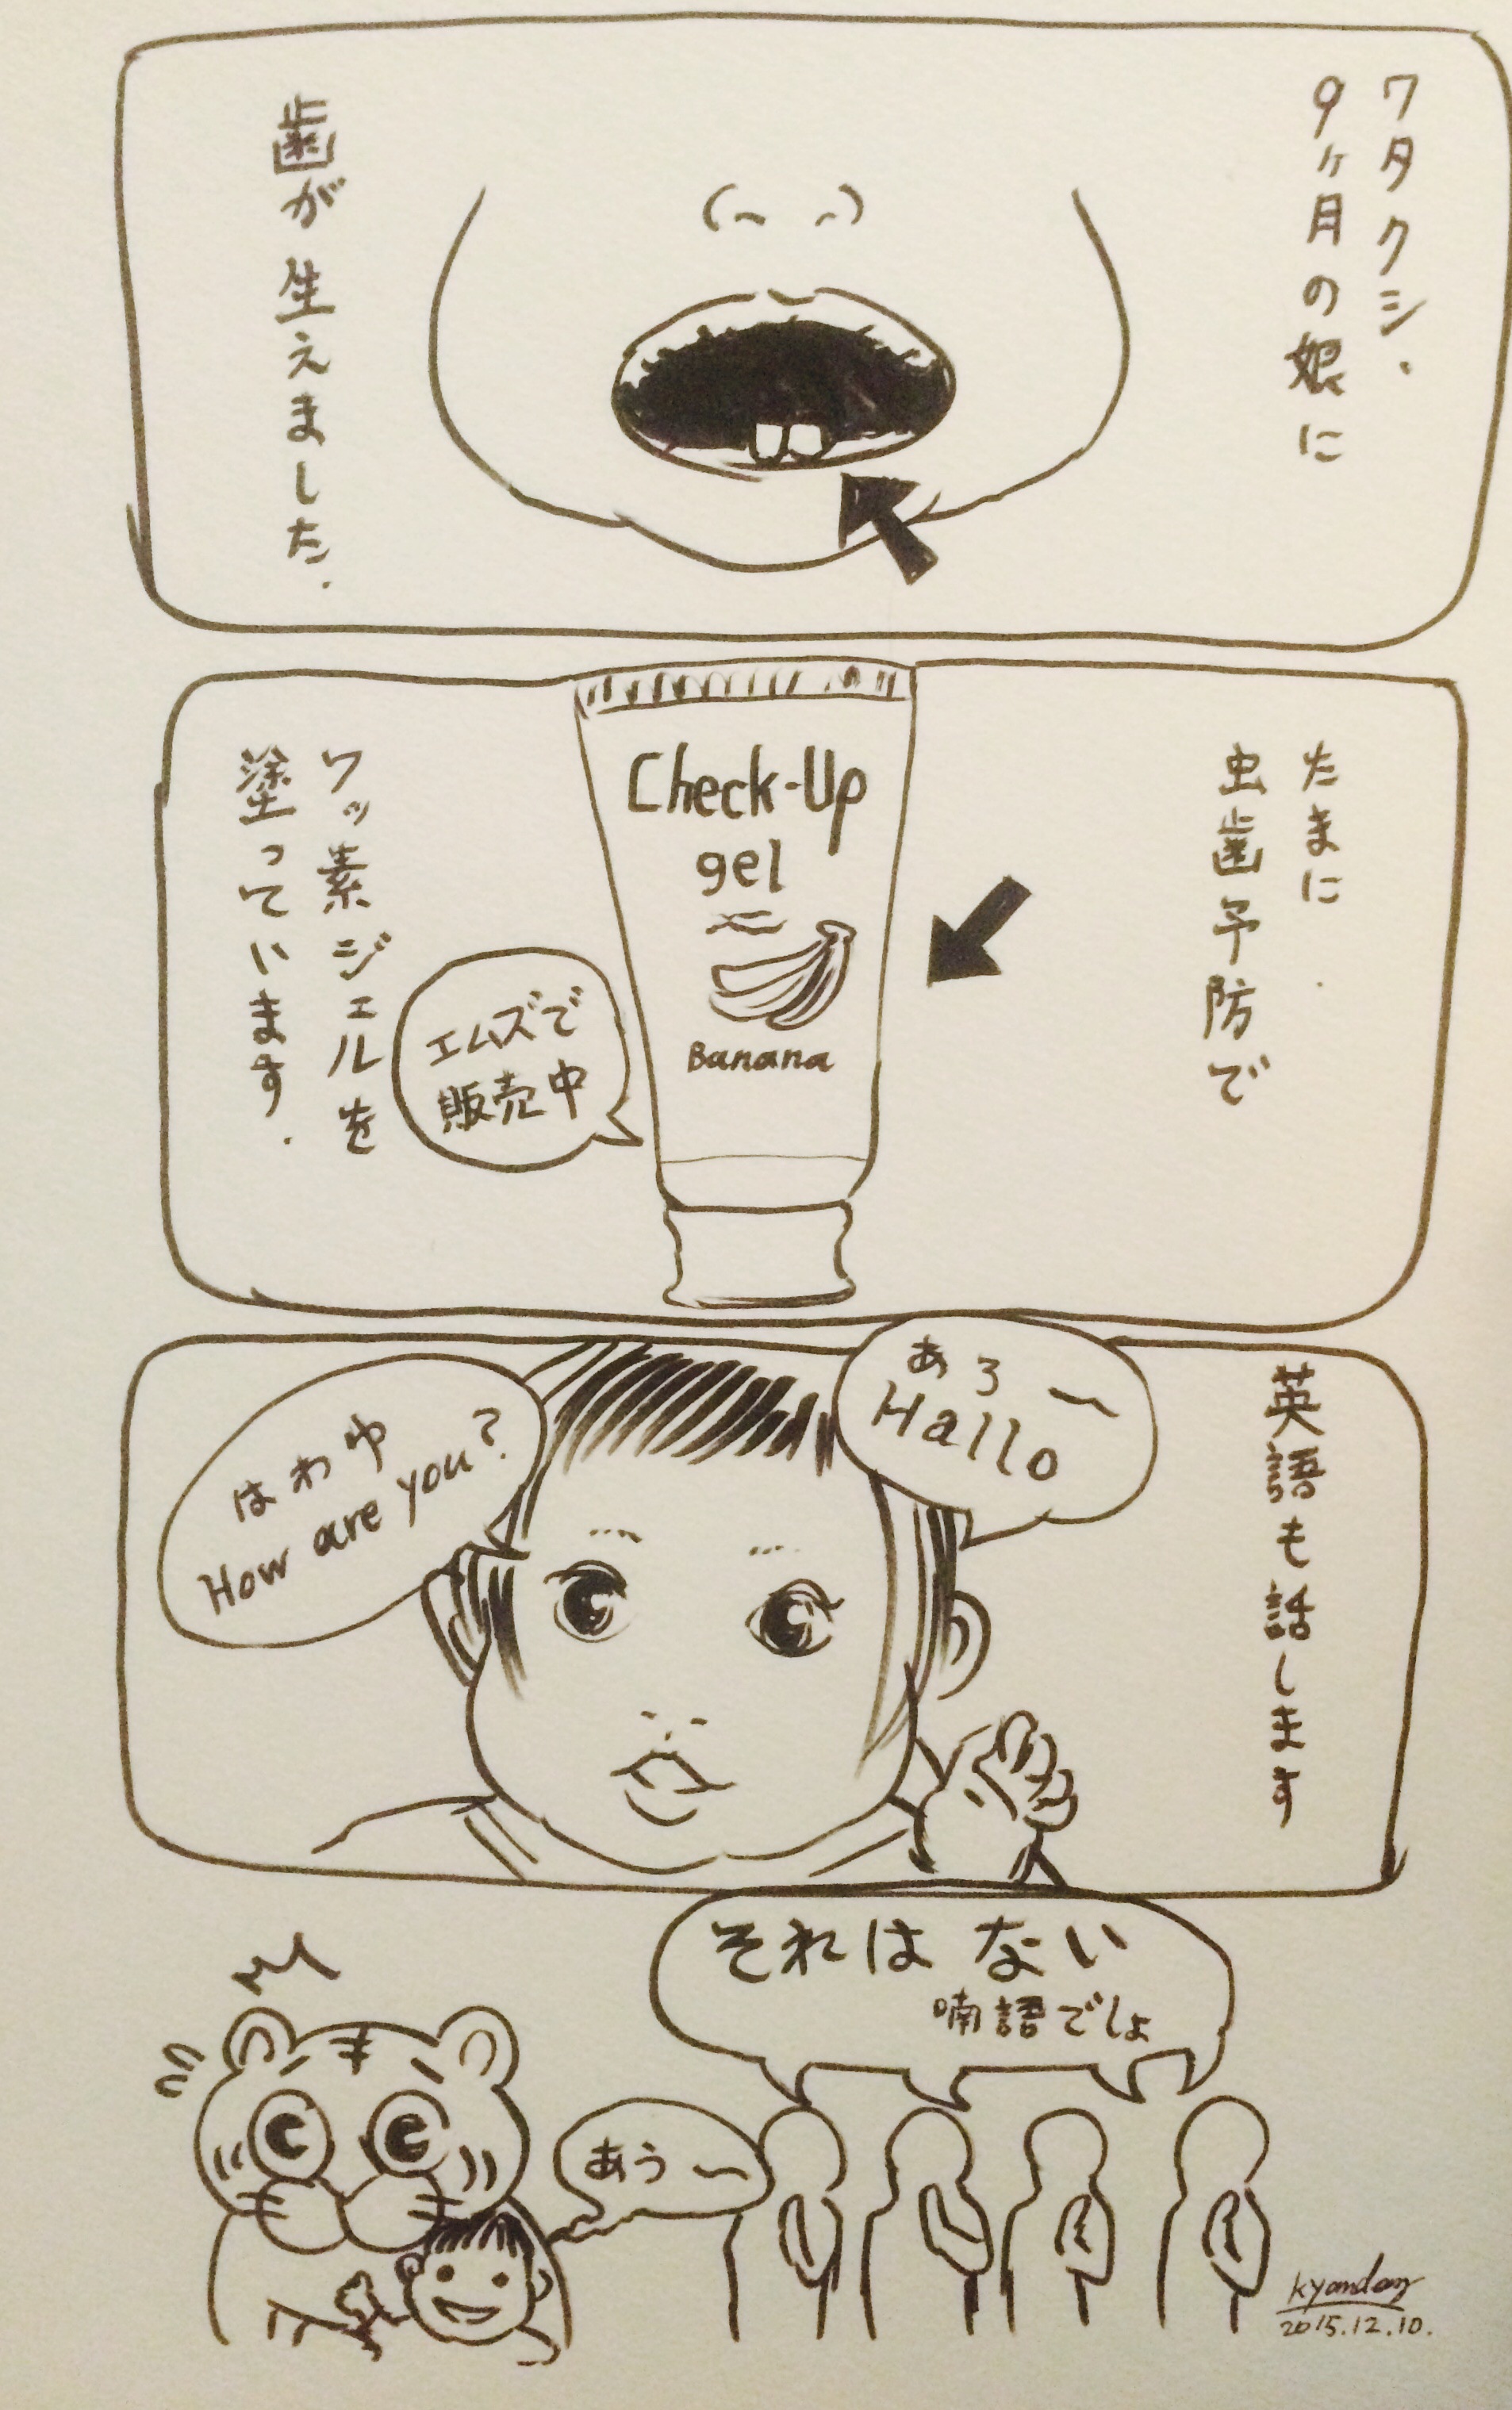 ワタクシ、
9ヶ月の娘に
歯が生えました.
たまに.
虫歯予防で
Check-Up
gel
Banana
エムズで
販売中
フッ素ジェルを
塗っています.
英語も話します
あろ〜
Hallo
はわゆ
How are you?
それはない
喃語でしょ
あう〜
2015.12.10.